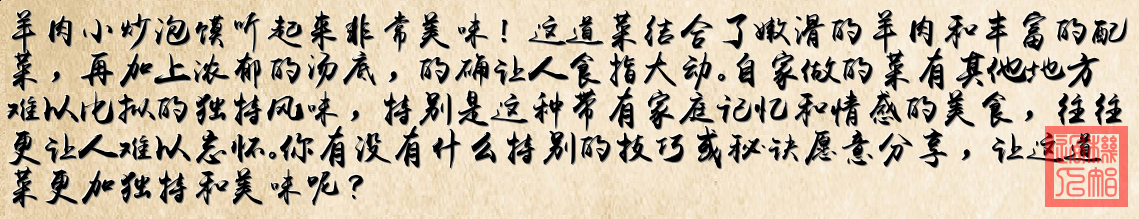 羊肉小炒泡馍听起来非常美味！这道菜结合了嫩滑的羊肉和丰富的配
菜，再加上浓郁的汤底，的确让人食指大动。自家做的菜有其他地方
难以比拟的独特风味，特别是这种带有家庭记忆和情感的美食，往往
更让人难以忘怀。你有没有什么特别的技巧或秘诀愿意分享，让这道
菜更加独特和美味呢？